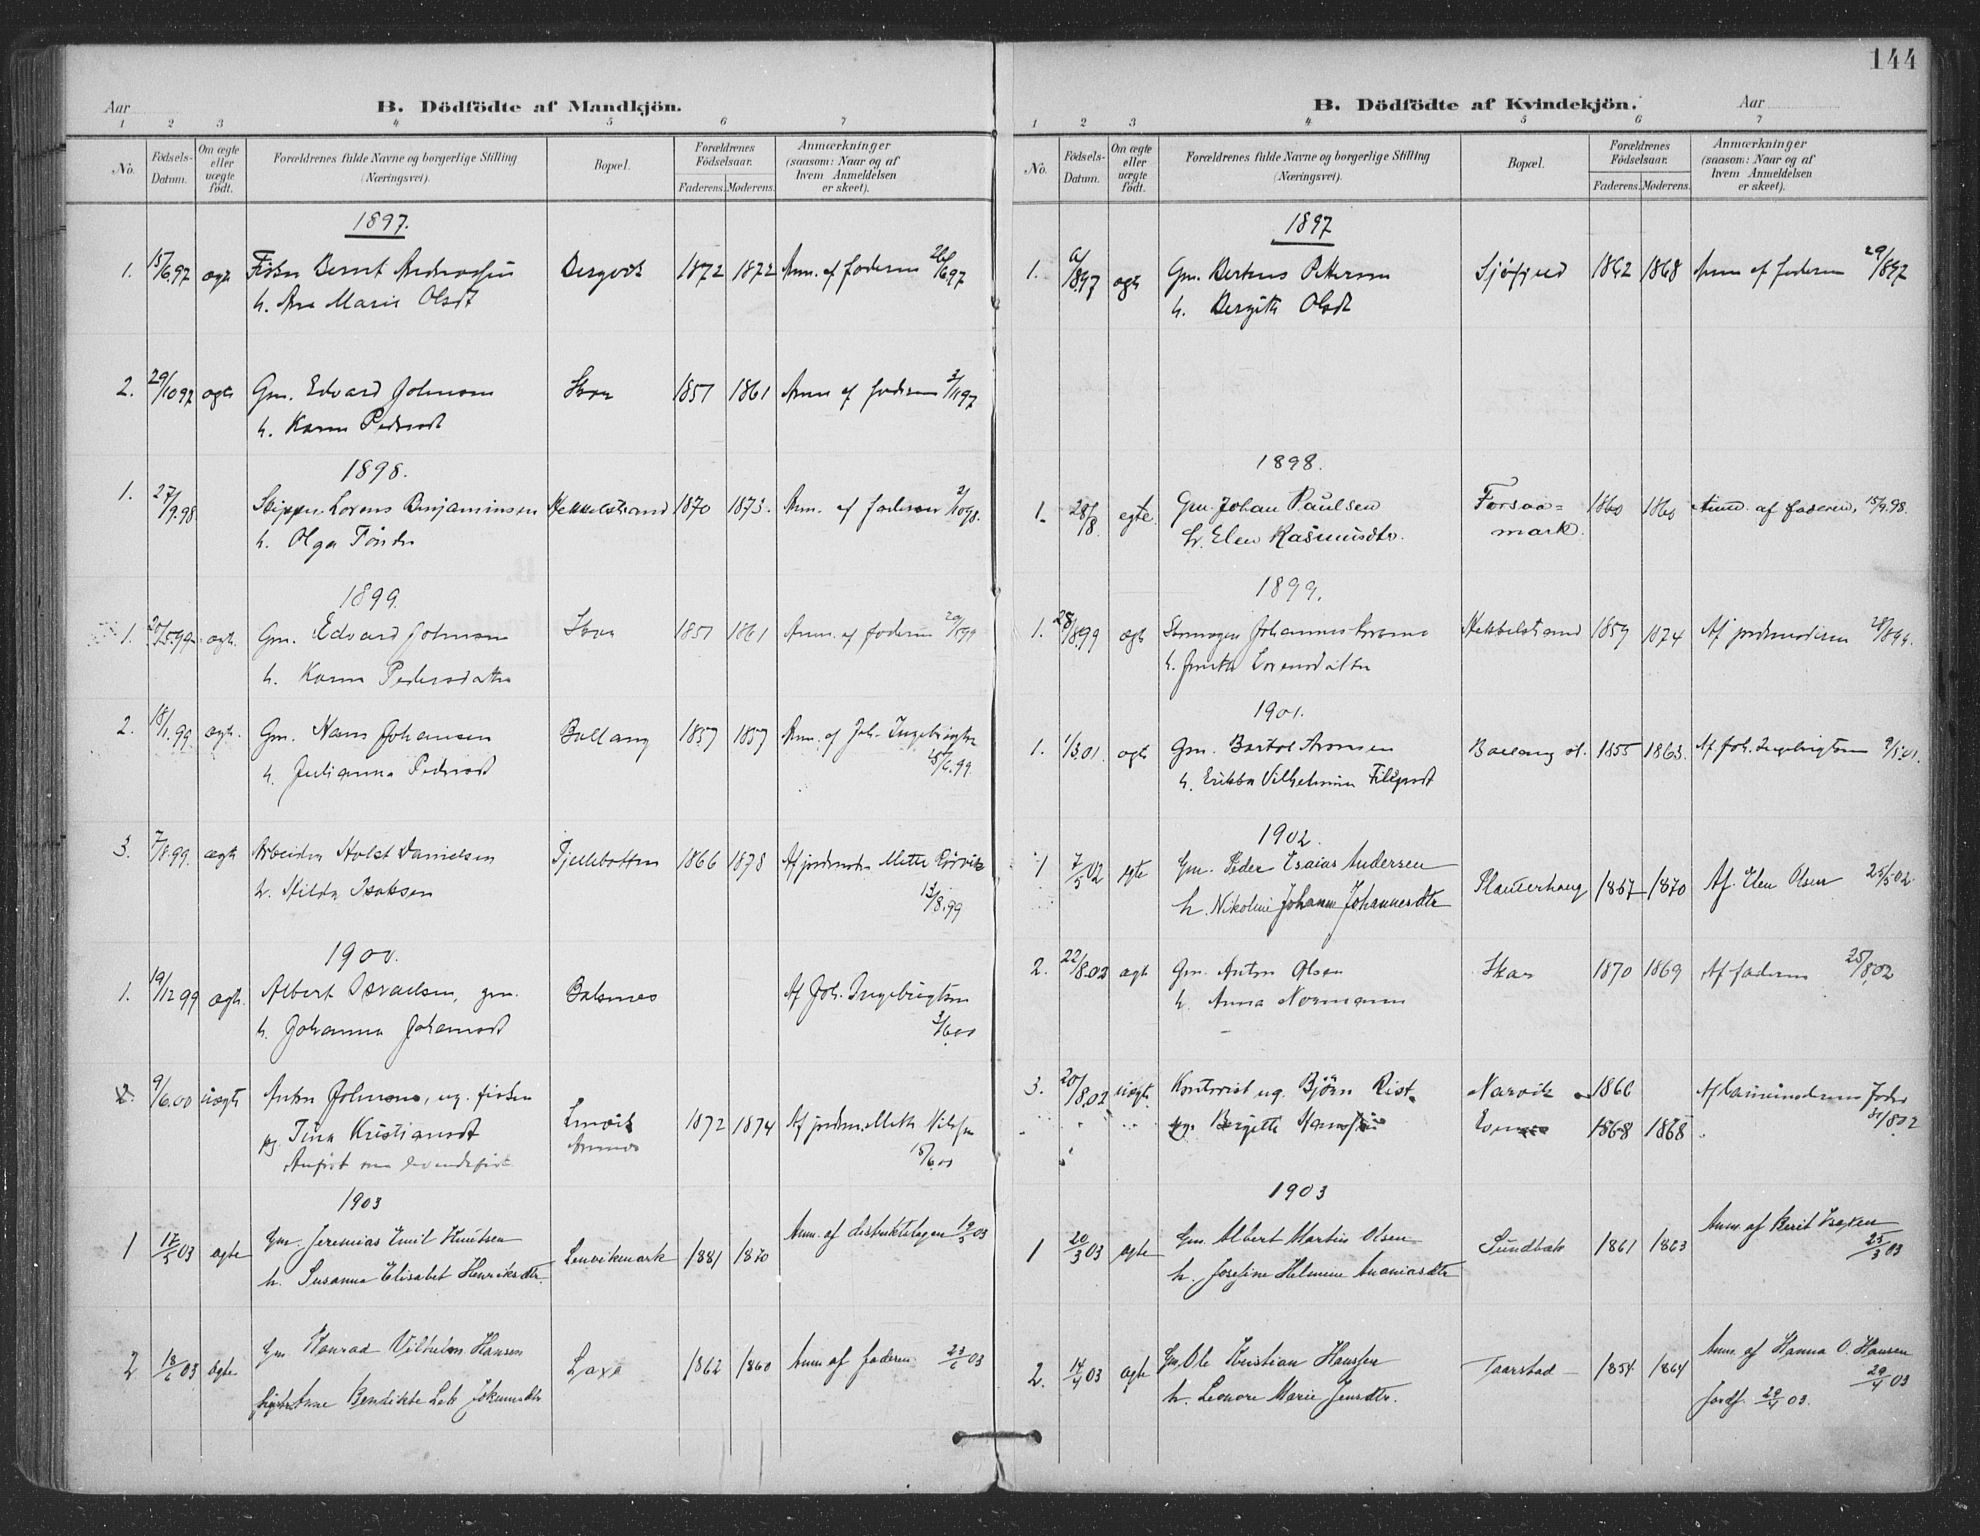 144
Aar
B. Dödfödte af Mandkjön.
1 2 3 4 5 6 7
No.
Födsels-Datum.
Om ægte eller uægte födt.
Forældrenes fulde Navne og borgerlige Stilling (Næringsvei).
Bopæl.
Forældrenes Födselsaar.
Faderens. Moderens.
Anmærkninger (saasom: Naar og af hvem Anmeldelsen er skeet).
1897.
1. 15/6 97 ægt Fisker Bernt Andreassen Bergvik 1872 1872 Anm. af faderen 26/6 97
h. Ane Marie Olsdt
2. 29/10 97 ægt Gm. Edvard Johnsen Skar 1851 1861 Anm af faderen 3/11 97
h. Karen Pedersdt
1898.
1. 27/9.98 Skipper Lorens Benjaminsen Hekkelstrand 1870 1873. Anm. af faderen 2/10 98.
h. Olga Tønder
1899.
1. /5 99 ægt. Gm. Edvard Johnsen Skar 1851 1861 Anm. af faderen
h. Karen Pedersdatter
2. 18/1.99. ægt. Gm. Hans Johansen Ballang 1857 1857 Anm. af Joh. Ingebrigtsen
h. Julianna Pedersdt 18/6.99.
3. 7/8 99. ægt Arbeider Holst Danielsen Fjellbotten 1866 1878 Af jordmoder Mette Rørvik
h. Hilda Isaksen 13/8.99
1900.
1. 19/12 99 ægt. Albert Israelsen, gm. Balsnes Af Joh. Ingebrigtsen
h. Johanna Johansdt 3/6 00
2. 9/6.00 uægt Anton Johnsen, ug. fisker
pg Tina Kristiansdt Lenvik 1872 1874 Af jordm. Mette Nilsen
15/6.00
1903
1 17/5 03 ægte Gm. Jeremias Emil Knutsen Lenvikmark 1881 1870 Anm. af distriktslægen 19/5 03
h. Susanna Elisabet Henriksdtr.
2 18/6 03 ægte Gm Konrad Vilhelm Hansen Laxå 1862 1860 Anm af faderen 23/6 03
Anne Bendikte Johannesdtr
B. Dödfödte af Kvindekjön.
Aar
1 2 3 4 5 6 7
No.
Födsels-Datum.
Om ægte eller uægte födt.
Forældrenes fulde Navne og borgerlige Stilling (Næringsvei).
Bopæl.
Forældrenes Födselsaar.
Faderens. Moderens.
Anmærkninger (saasom: Naar og af hvem Anmeldelsen er skeet).
1897
1. 6/8 97 ægt Gm. Berteus Petersen 1868 Anm af faderen 29/8 97
h. Bergitte Olsdt
1898.
1. 28/8. egte. Gm. Johan Paulsen Forsaa= 1860 1860 Anm. af faderen, 15/9.98.
h. Elen Rasmusdtr. mark.
1899.
1. 28/8.99 ægt Johannes Hekkelstrand 1859 1874 Af jordmoderen
h. Lorensdatter
1901.
1. 1/3.01. ægt Gm. Bartol Aronsen Ballang st. 1855 1863. Af Joh. Ingebrigtsen
h. Erikka Vilhelmina
1902.
1 7/5 02 egte Gm. Peder Esaias Andersen Planterhaug 1867 1870 Af. Elen Olsen 25/5 02.
h. Nikoline Johanna Johannesdtr
2. 22/8.02 ægt Gm. Anton Olsen Skar 1870 1869 Af faderen 25/8.02
h. Anna Normann
3. 20/8.02 uægt. Kontorist ug. Björn Rist. Narvik 1860 Af barnemoderens Fader
pg. Bergitte 1868 1868 31/8 02
1903
1 20/3 03 ægte Gm. Albert Martin Olsen Sundbæk 1861 1863 Anm. af Berit Isaxen
h. Josefine Helmine Ananiasdtr 25/3 03
2. 14/4 03 ægte Gm. Ole Kristian Hanssen Taarstad 1854 1864 Anm. af Hanna O. Hansen
h. Leonore Marie Jensdtr. 29/4 03
Jordf. 29/4 03.